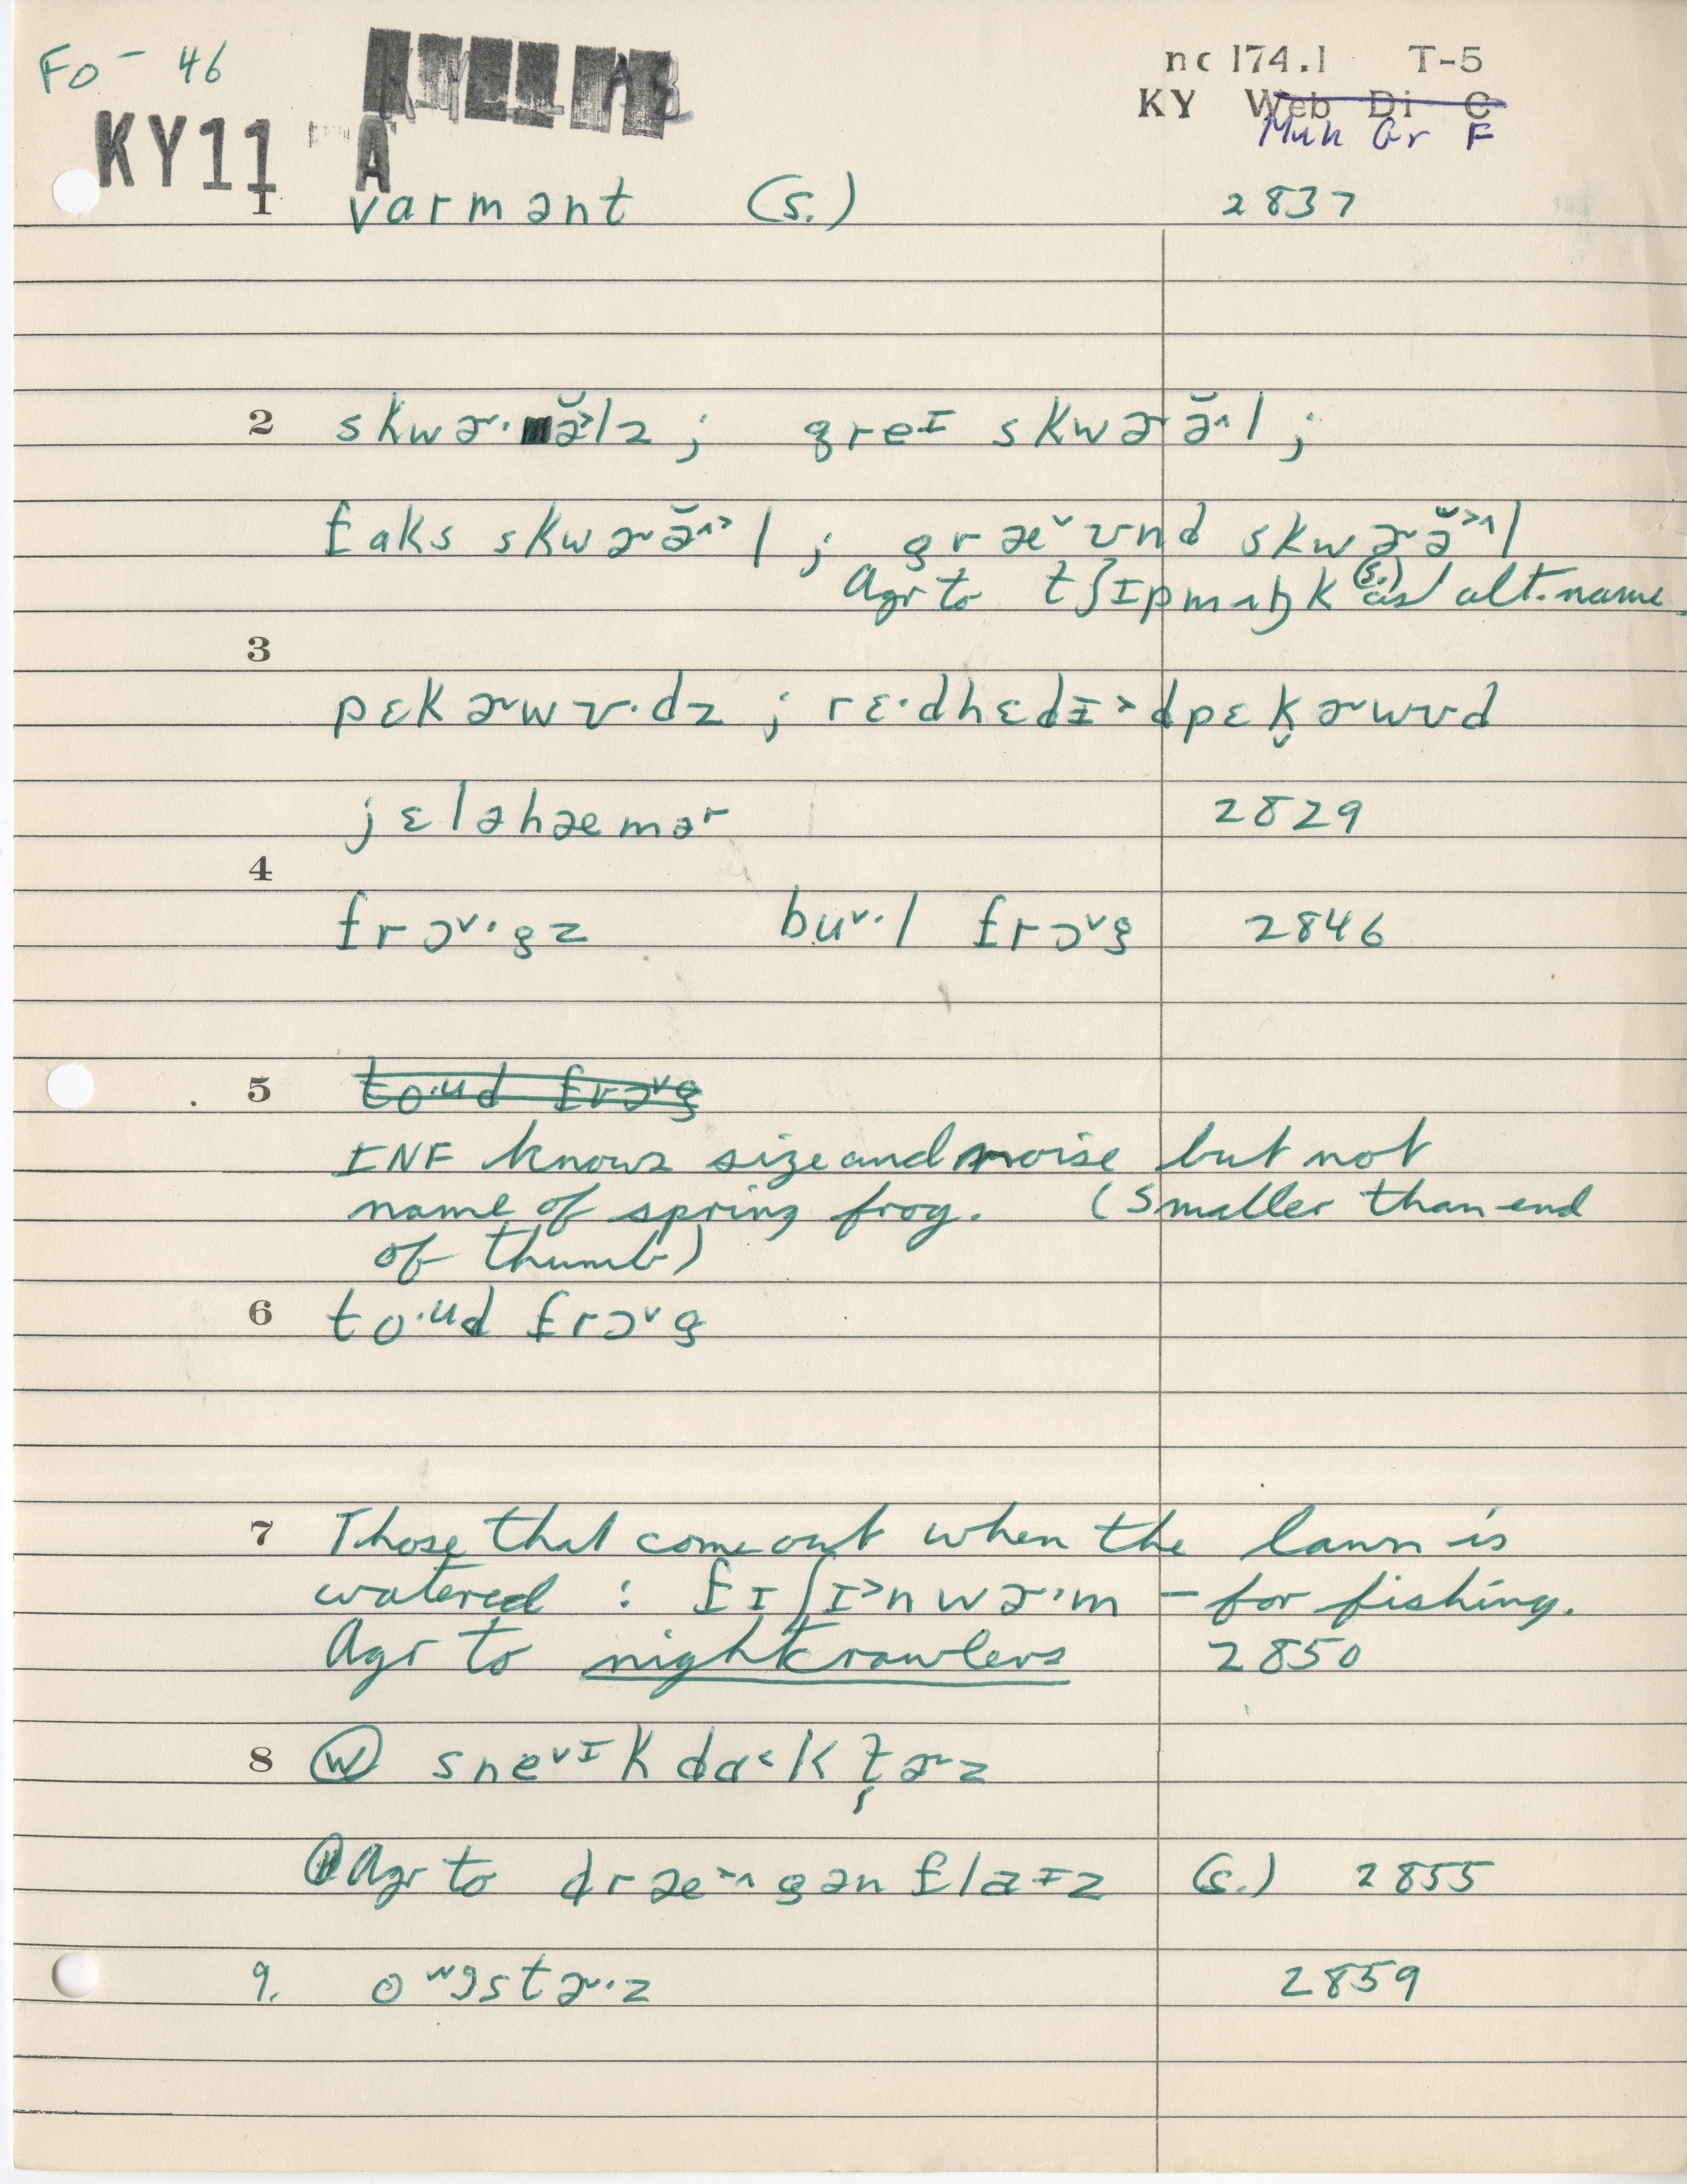 Fo - 46
nc 174.1 T-5
KY Web Di C
KY11 A
Muh Gr F
1 varmənt (s.) 2837
2 skwɚ·ə̆˃lz ; greɪ skwɚə̆˄l ;
faks skwɚə̆˄˃l ; græ˅ʊnd skwɚə̆˃˄l
Agr to tʃɪpmʌŋk (s.) as alt. name.
3
pɛkɚwʊ·dz ; rɛ·dhɛdɪ˃dpɛk̬ɚwʊd
jɛləhæmər 2829
4
frɔ˅·gz bu˅·l frɔ˅g 2846
5 to·ud frɔ˅g
INF knows size and noise but not
name of spring frog. (Smaller than end
of thumb)
6 to·ud frɔ˅g
7 Those that come out when the lawn is
watered : fɪʃɪ˃n wɚ·m – for fishing.
Agr to nightcrawlers 2850
8 (W) sne˅ɪkdɑ˂kt̬ɚz
Agr to dræ˃˄gənflaɪz (s.) 2855
9. oʷgstɚ·z 2859